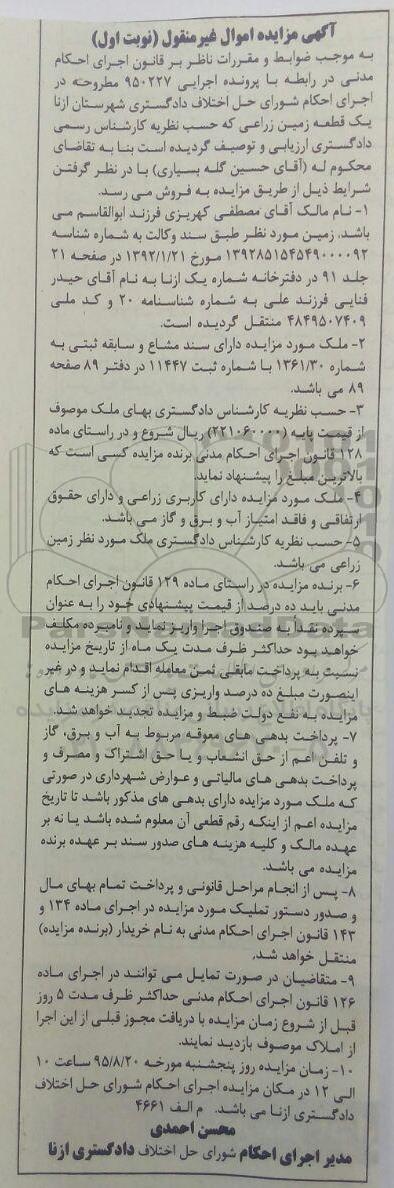 آگهی مزایده اموال غیرمنقول (نوبت اول)
به موجب ضوابط و مقررات ناظر بر قانون اجرای احکام
مدنی در رابطه با پرونده اجرایی ۹۵۰۲۲۷ مطروحه در
اجرای احکام شورای حل اختلاف دادگستری شهرستان ازنا
یک قطعه زمین زراعی که حسب نظریه کارشناس رسمی
دادگستری ارزیابی و توصیف گردیده است بنا به تقاضای
محکوم له (آقای حسین گله بسیاری) با در نظر گرفتن
شرایط ذیل از طریق مزایده به فروش می رسد.
۱- نام مالک آقای مصطفی کهریزی فرزند ابوالقاسم می
باشد. زمین مورد نظر طبق سند وکالت به شماره شناسه
۱۳۹۲۸۵۱۵۴۵۴۹۰۰۰۰۹۲ مورخ ۱۳۹۲/۱/۲۱ در صفحه ۲۱
جلد ۹۱ در دفترخانه شماره یک ازنا به نام آقای حیدر
فنایی فرزند علی به شماره شناسنامه ۲۰ و کد ملی
۴۸۴۹۵۰۷۴۰۹ منتقل گردیده است.
۲- ملک مورد مزایده دارای سند مشاع و سابقه ثبتی به
شماره ۱۳۶۱/۳۰ با شماره ثبت ۱۱۴۴۷ در دفتر ۸۹ صفحه
۸۹ می باشد.
۳- حسب نظریه کارشناس دادگستری بهای ملک موصوف
از قیمت پایه (۲۲۱۰۶۰۰۰۰) ریال شروع و در راستای ماده
۱۲۸ قانون اجرای احکام مدنی برنده مزایده کسی است که
بالاترین مبلغ را پیشنهاد نماید.
۴- ملک مورد مزایده دارای کاربری زراعی و دارای حقوق
ارتفاقی و فاقد امتیاز آب و برق و گاز می باشد.
۵- حسب نظریه کارشناس دادگستری ملک مورد نظر زمین
زراعی می باشد.
۶- برنده مزایده در راستای ماده ۱۲۹ قانون اجرای احکام
مدنی باید ده درصد از قیمت پیشنهادی خود را به عنوان
سپرده نقداً به صندوق اجرا واریز نماید و نامبرده مکلف
خواهد بود حداکثر ظرف مدت یک ماه از تاریخ مزایده
نسبت به پرداخت مابقی ثمن معامله اقدام نماید و در غیر
اینصورت مبلغ ده درصد واریزی پس از کسر هزینه های
مزایده به نفع دولت ضبط و مزایده تجدید خواهد شد.
۷- پرداخت بدهی های معوقه مربوط به آب و برق، گاز
و تلفن اعم از حق انشعاب و یا حق اشتراک و مصرف و
پرداخت بدهی های مالیاتی و عوارض شهرداری در صورتی
که ملک مورد مزایده دارای بدهی های مذکور باشد تا تاریخ
مزایده اعم از اینکه رقم قطعی آن معلوم شده باشد یا نه بر
عهده مالک و کلیه هزینه های صدور سند بر عهده برنده
مزایده می باشد.
۸- پس از انجام مراحل قانونی و پرداخت تمام بهای مال
و صدور دستور تملیک مورد مزایده در اجرای ماده ۱۳۴ و
۱۴۳ قانون اجرای احکام مدنی به نام خریدار (برنده مزایده)
منتقل خواهد شد.
۹- متقاضیان در صورت تمایل می توانند در اجرای ماده
۱۲۶ قانون اجرای احکام مدنی حداکثر ظرف مدت ۵ روز
قبل از شروع زمان مزایده با دریافت مجوز قبلی از این اجرا
از املاک موصوف بازدید نمایند.
۱۰- زمان مزایده روز پنجشنبه مورخه ۹۵/۸/۲۰ ساعت ۱۰
الی ۱۲ در مکان مزایده اجرای احکام شورای حل اختلاف
دادگستری ازنا می باشد. م الف ۴۶۶۱
محسن احمدی
مدیر اجرای احکام شورای حل اختلاف دادگستری ازنا